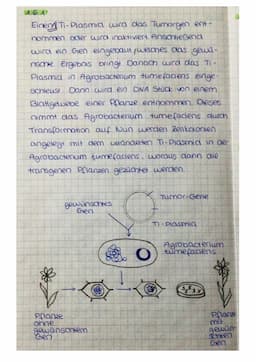 A6.1
Einem Ti-Plasmid wird das Tumorgen ent-
nommen oder wird inaktiviert. Anschließend
wird ein Gen eingebaut, welches das gewün-
schte Ergebnis bringt. Danach wird das Ti-
Plasmid in Agrobacterium tumefaciens einge-
schleust. Dann wird ein DNA Stück von einem
Blattgewebe einer Pflanze entnommen. Dieses
nimmt das Agrobacterium tumefaciens durch
Transformation auf. Nun werden Zellkolonien
angelegt mit dem veränderten Ti-Plasmid in der
Agrobacterium tumefaciens, woraus dann die
transgenen Pflanzen gezüchtet werden.
gewünschtes
Gen
Tumor-Gene
Ti-Plasmid
Agrobacterium
tumefaciens
Pflanze
ohne
gewünschtem
Gen
Pflanze
mit
gewün-
schtem
Gen